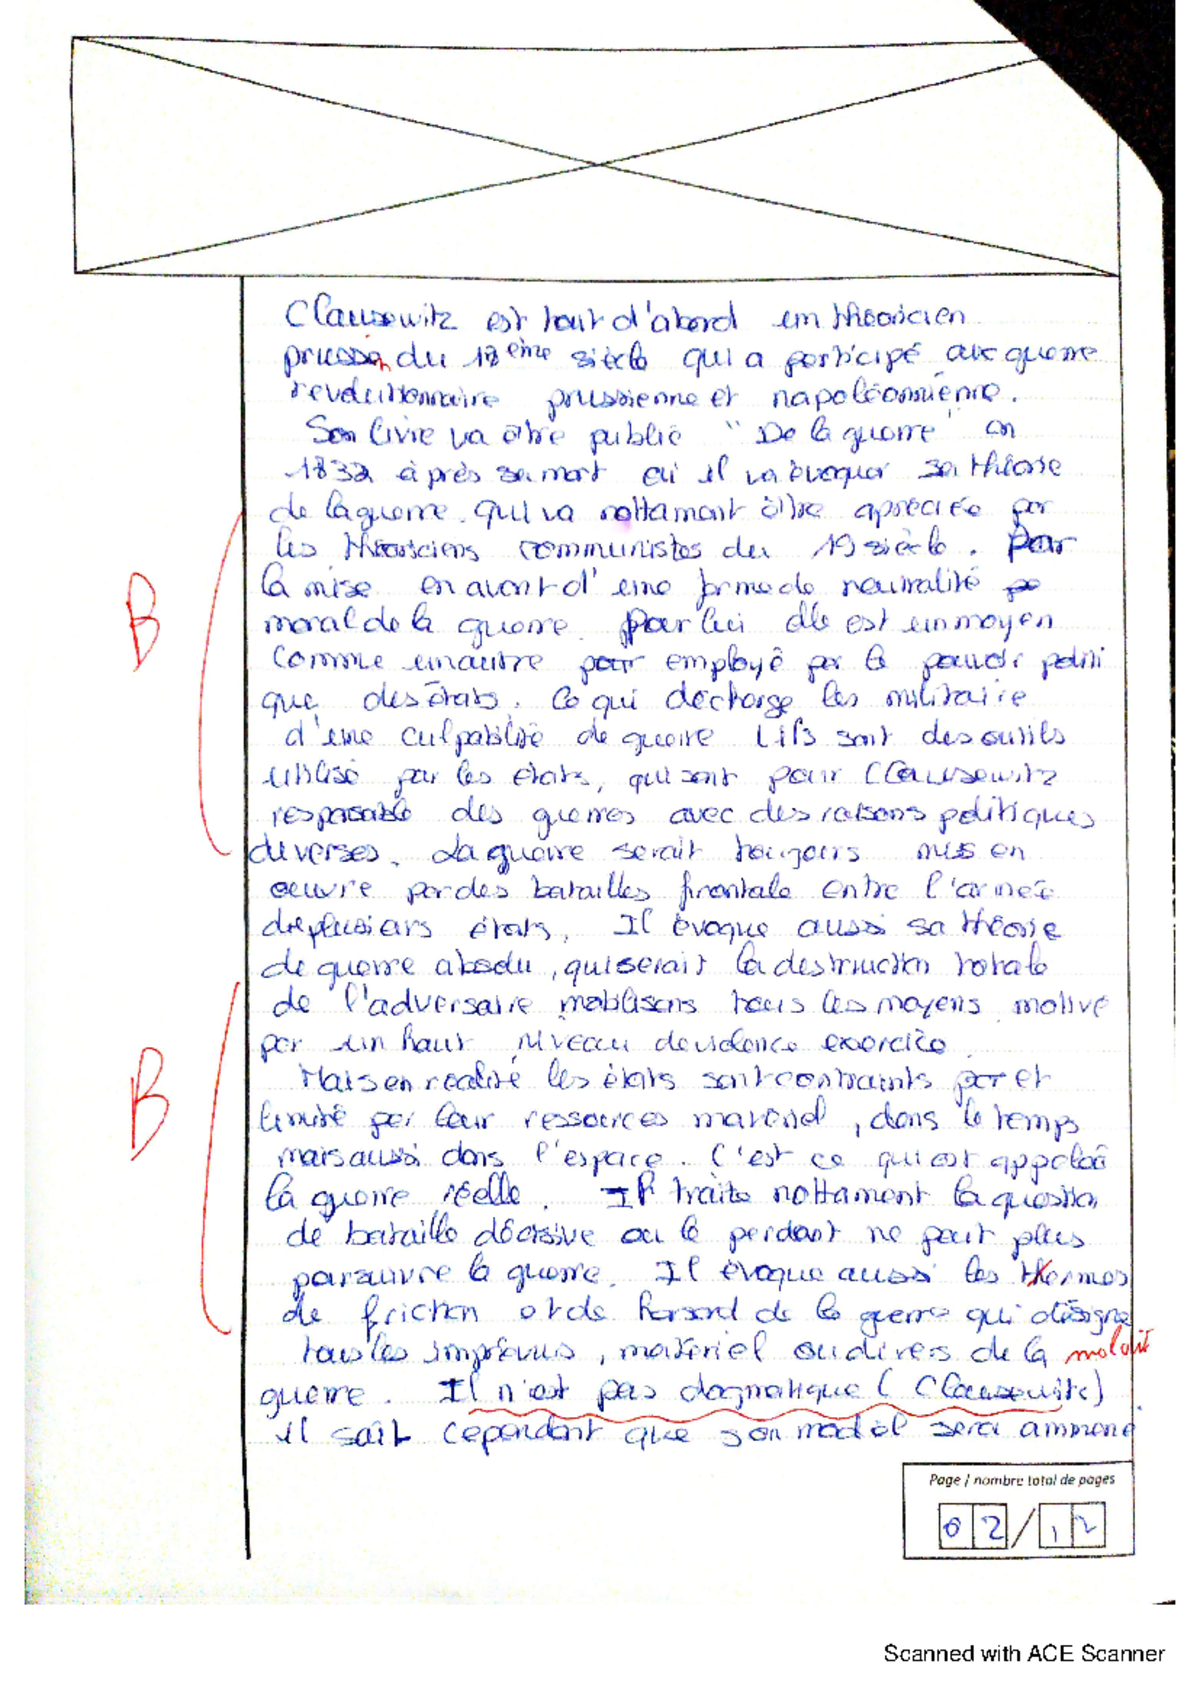 Clausewitz est tout d'abord un théoricien
prussien du 18ème siècle qui a participé aux guerre
revolutionnaire prussienne et napoléonnienne.
Son livre va être publié "De la guerre" en
1832 après sa mort où il va évoquer sa théorie
de la guerre. Qui va nottamant être apréciée par
les théoriciens communistes du 19 siècle. Par
la mise en avant d'une forme de neutralité
moral de la guerre. Pour lui elle est un moyen
comme un autre pour employé par le pouvoir politi
que des états. Ce qui décharge les militaire
d'une culpabilité de guerre ils sont des outils
utilisé par les états, qui sont pour Clausewitz
responsable des guerres avec des raisons politiques
diverses. La guerre serait toujours mis en
oeuvre par des batailles frontale entre l'armée
de plusieurs états. Il évoque aussi sa théorie
de guerre absolu, qui serait la destruction totale
de l'adversaire mobilisons tous les moyens motivé
par un haut niveau de violence exercice.
Mais en réalité les états sont contraints par et
limité par leur ressources matériel, dans le temps
mais aussi dans l'espace. C'est ce qui est appelée
la guerre réelle. Il traite nottament la question
de bataille décisive ou le perdant ne peut plus
poursuivre la guerre. Il évoque aussi les thermes
de friction et de hasard de la guerre qui désigne
tous les imprévus, matériel ou divers de la
guerre. Il n'est pas dogmatique (Clausewitz)
il sait cependant que son modèl sera ammené
B
B
Page / nombre total de pages
02/12
Scanned with ACE Scanner